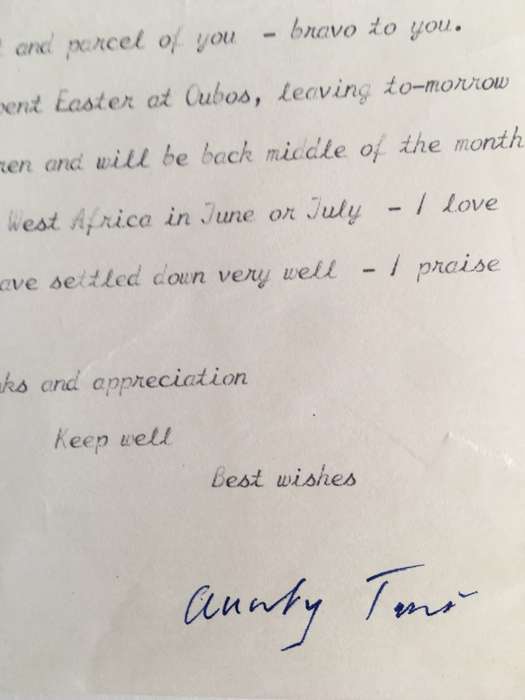 and parcel of you - bravo to you.
Easter at Oubos, leaving to-morrow
and will be back middle of the month
West Africa in June or July - I love
settled down very well - I praise
and appreciation
Keep well
Best wishes
Aunty